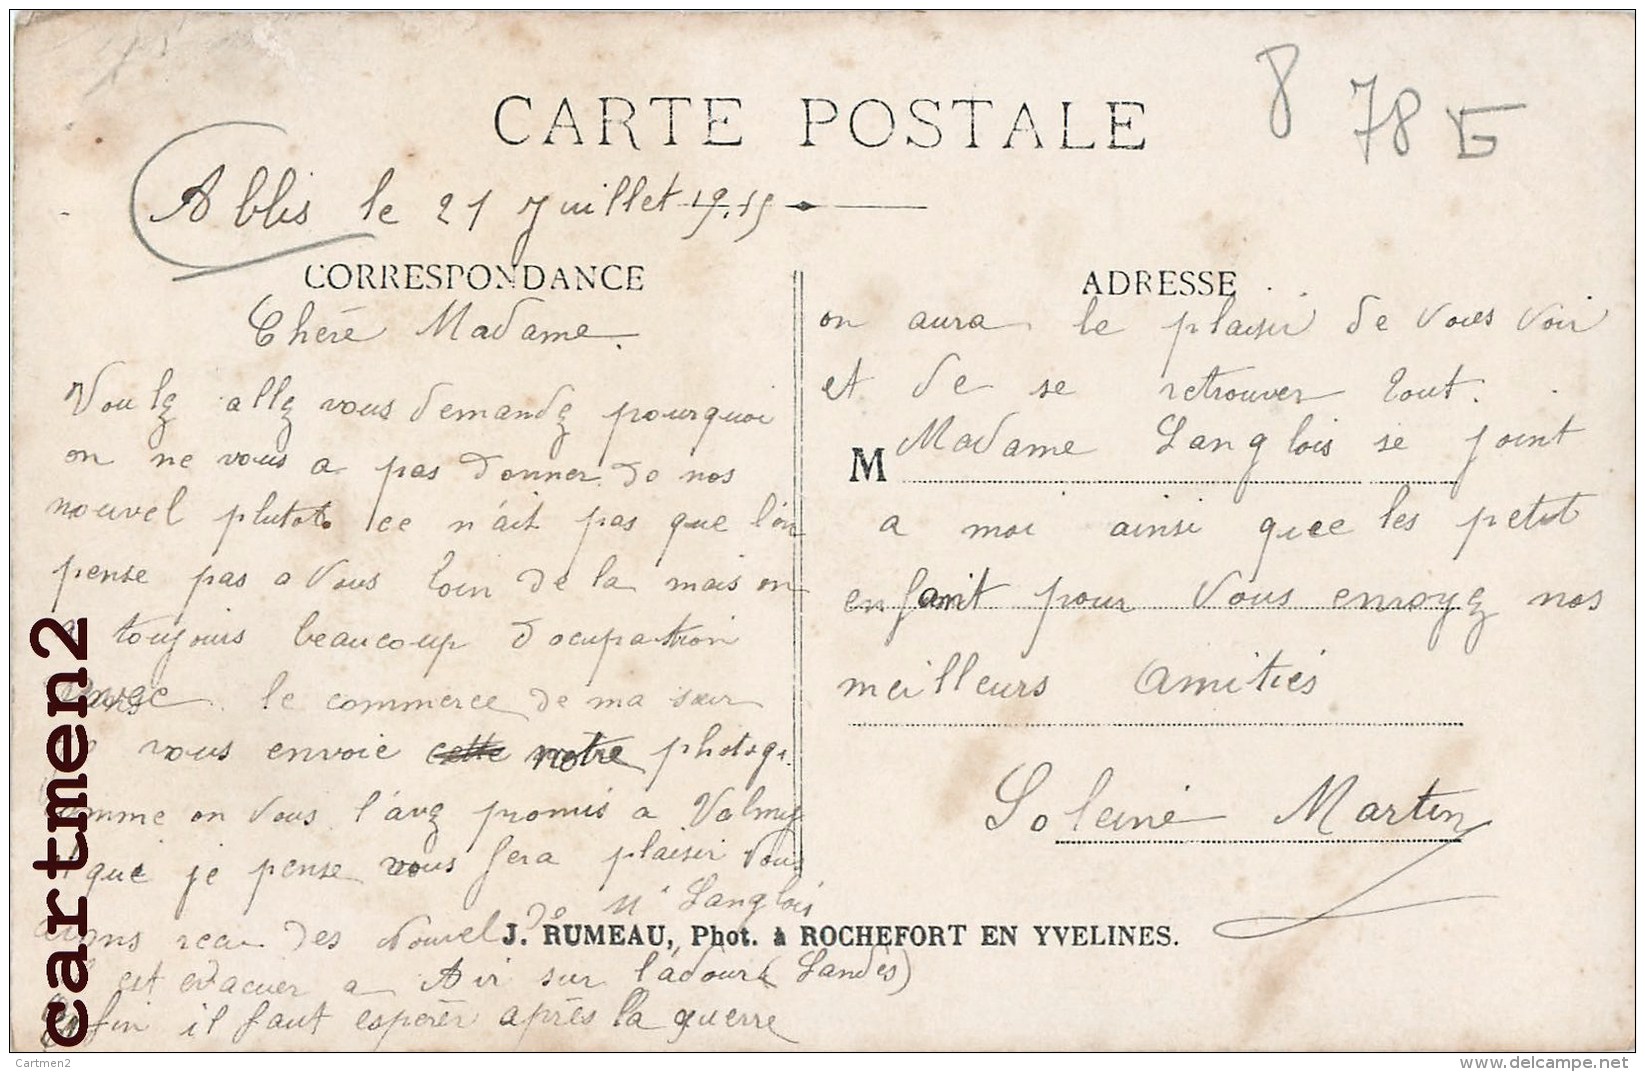 CARTE POSTALE
8 78
Ablis le 21 Juillet 1915
CORRESPONDANCE
Chère Madame
Voulez allez vous demandez pourquoi
on ne vous a pas donner de nos
nouvel plutot ce n'ait pas que l'on
pense pas a Vous loin de la mais on
a toujours beaucoup d'ocupation
le commerce de ma sœur
vous envoie cette notre photogr.
comme on Vous l'avez promis a Valmy
et qui je pense vous fera plaisir Nous
avons recu des Nouvel de Mr Langlois
est evacuer a Air sur l'adour (Landes)
Enfin il faut espérer après la guerre
ADRESSE
on aura le plaisir de Vous Voir
et de se retrouver tout.
M
Madame Langlois se joint
a moi ainsi que les petit
enfant pour Vous envoyez nos
meilleurs Amitiés
Soleine Martin
J. RUMEAU, Phot. à ROCHEFORT EN YVELINES.
cartmen2
Cartmen2
www.delcampe.net